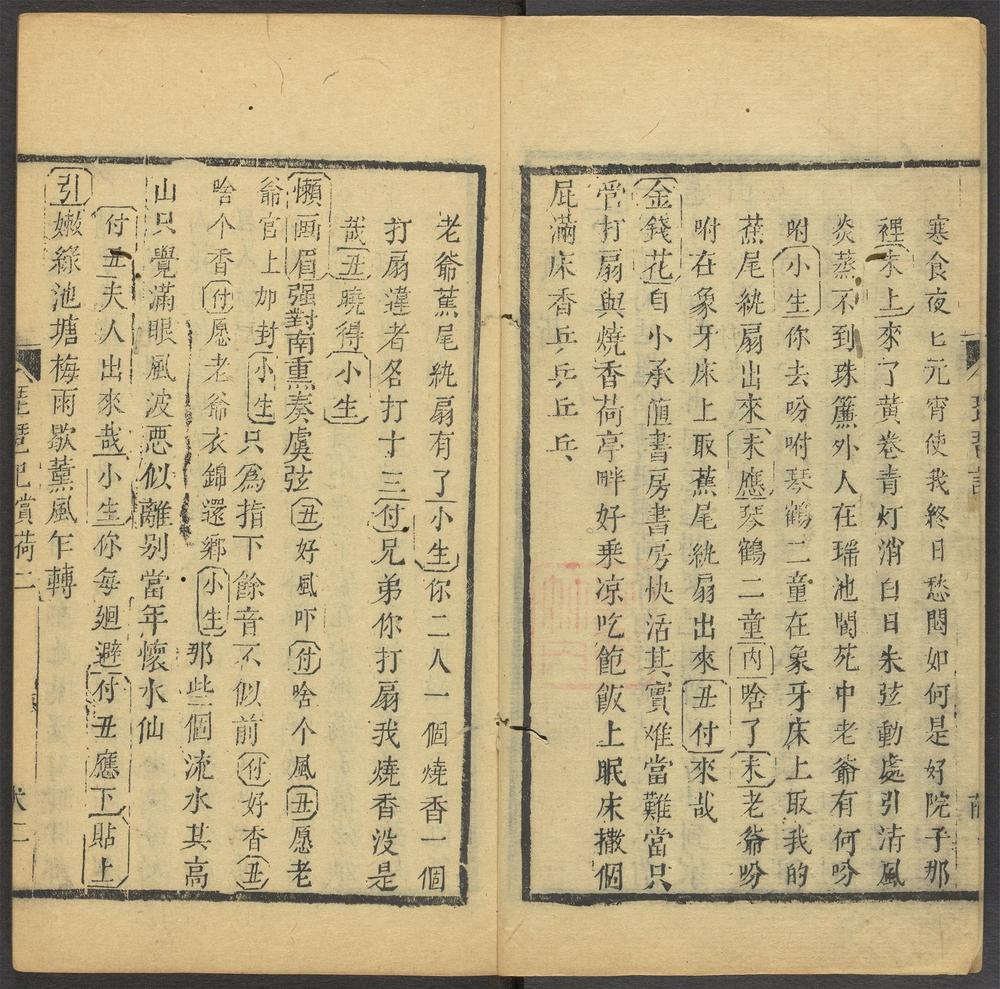 寒食夜匕元宵使我終日愁悶如何是好院子那
裡末上來了黄卷青灯消白日朱弦動處引清風
炎蒸不到珠簾外人在瑞池閬苑中老爺有何吩
咐小生你去吩咐琴鶴二童在象牙床上取我的
蕉尾紈扇出來末應琴鶴二童内啥了末老爺吩
咐在象牙床上取蕉尾紈扇出來丑付來哉
金錢花自小承值書房書房快活其實难當難當只
管打扇與燒香荷亭畔好乘凉吃飽飯上眠床撒個
屁滿床香乒乒乒乒
老爺蕉尾紈扇有了小生你二人一個燒香一個
打扇違者各打十三付兄弟你打扇我燒香没是
哉丑曉得小生
懶画眉强對南熏奏虞弦丑好風吓付啥个風丑愿老
爺官上加封小生只為指下餘音不似前付好香丑
啥个香付愿老爺衣錦還鄉小生那些個流水其高
山只覺滿眼風波悪似離别當年懷水仙
付丑夫人出來哉小生你每廻避付丑應下貼上
引嫩綠池塘梅雨歇薰風乍轉
琵琶記賞荷二